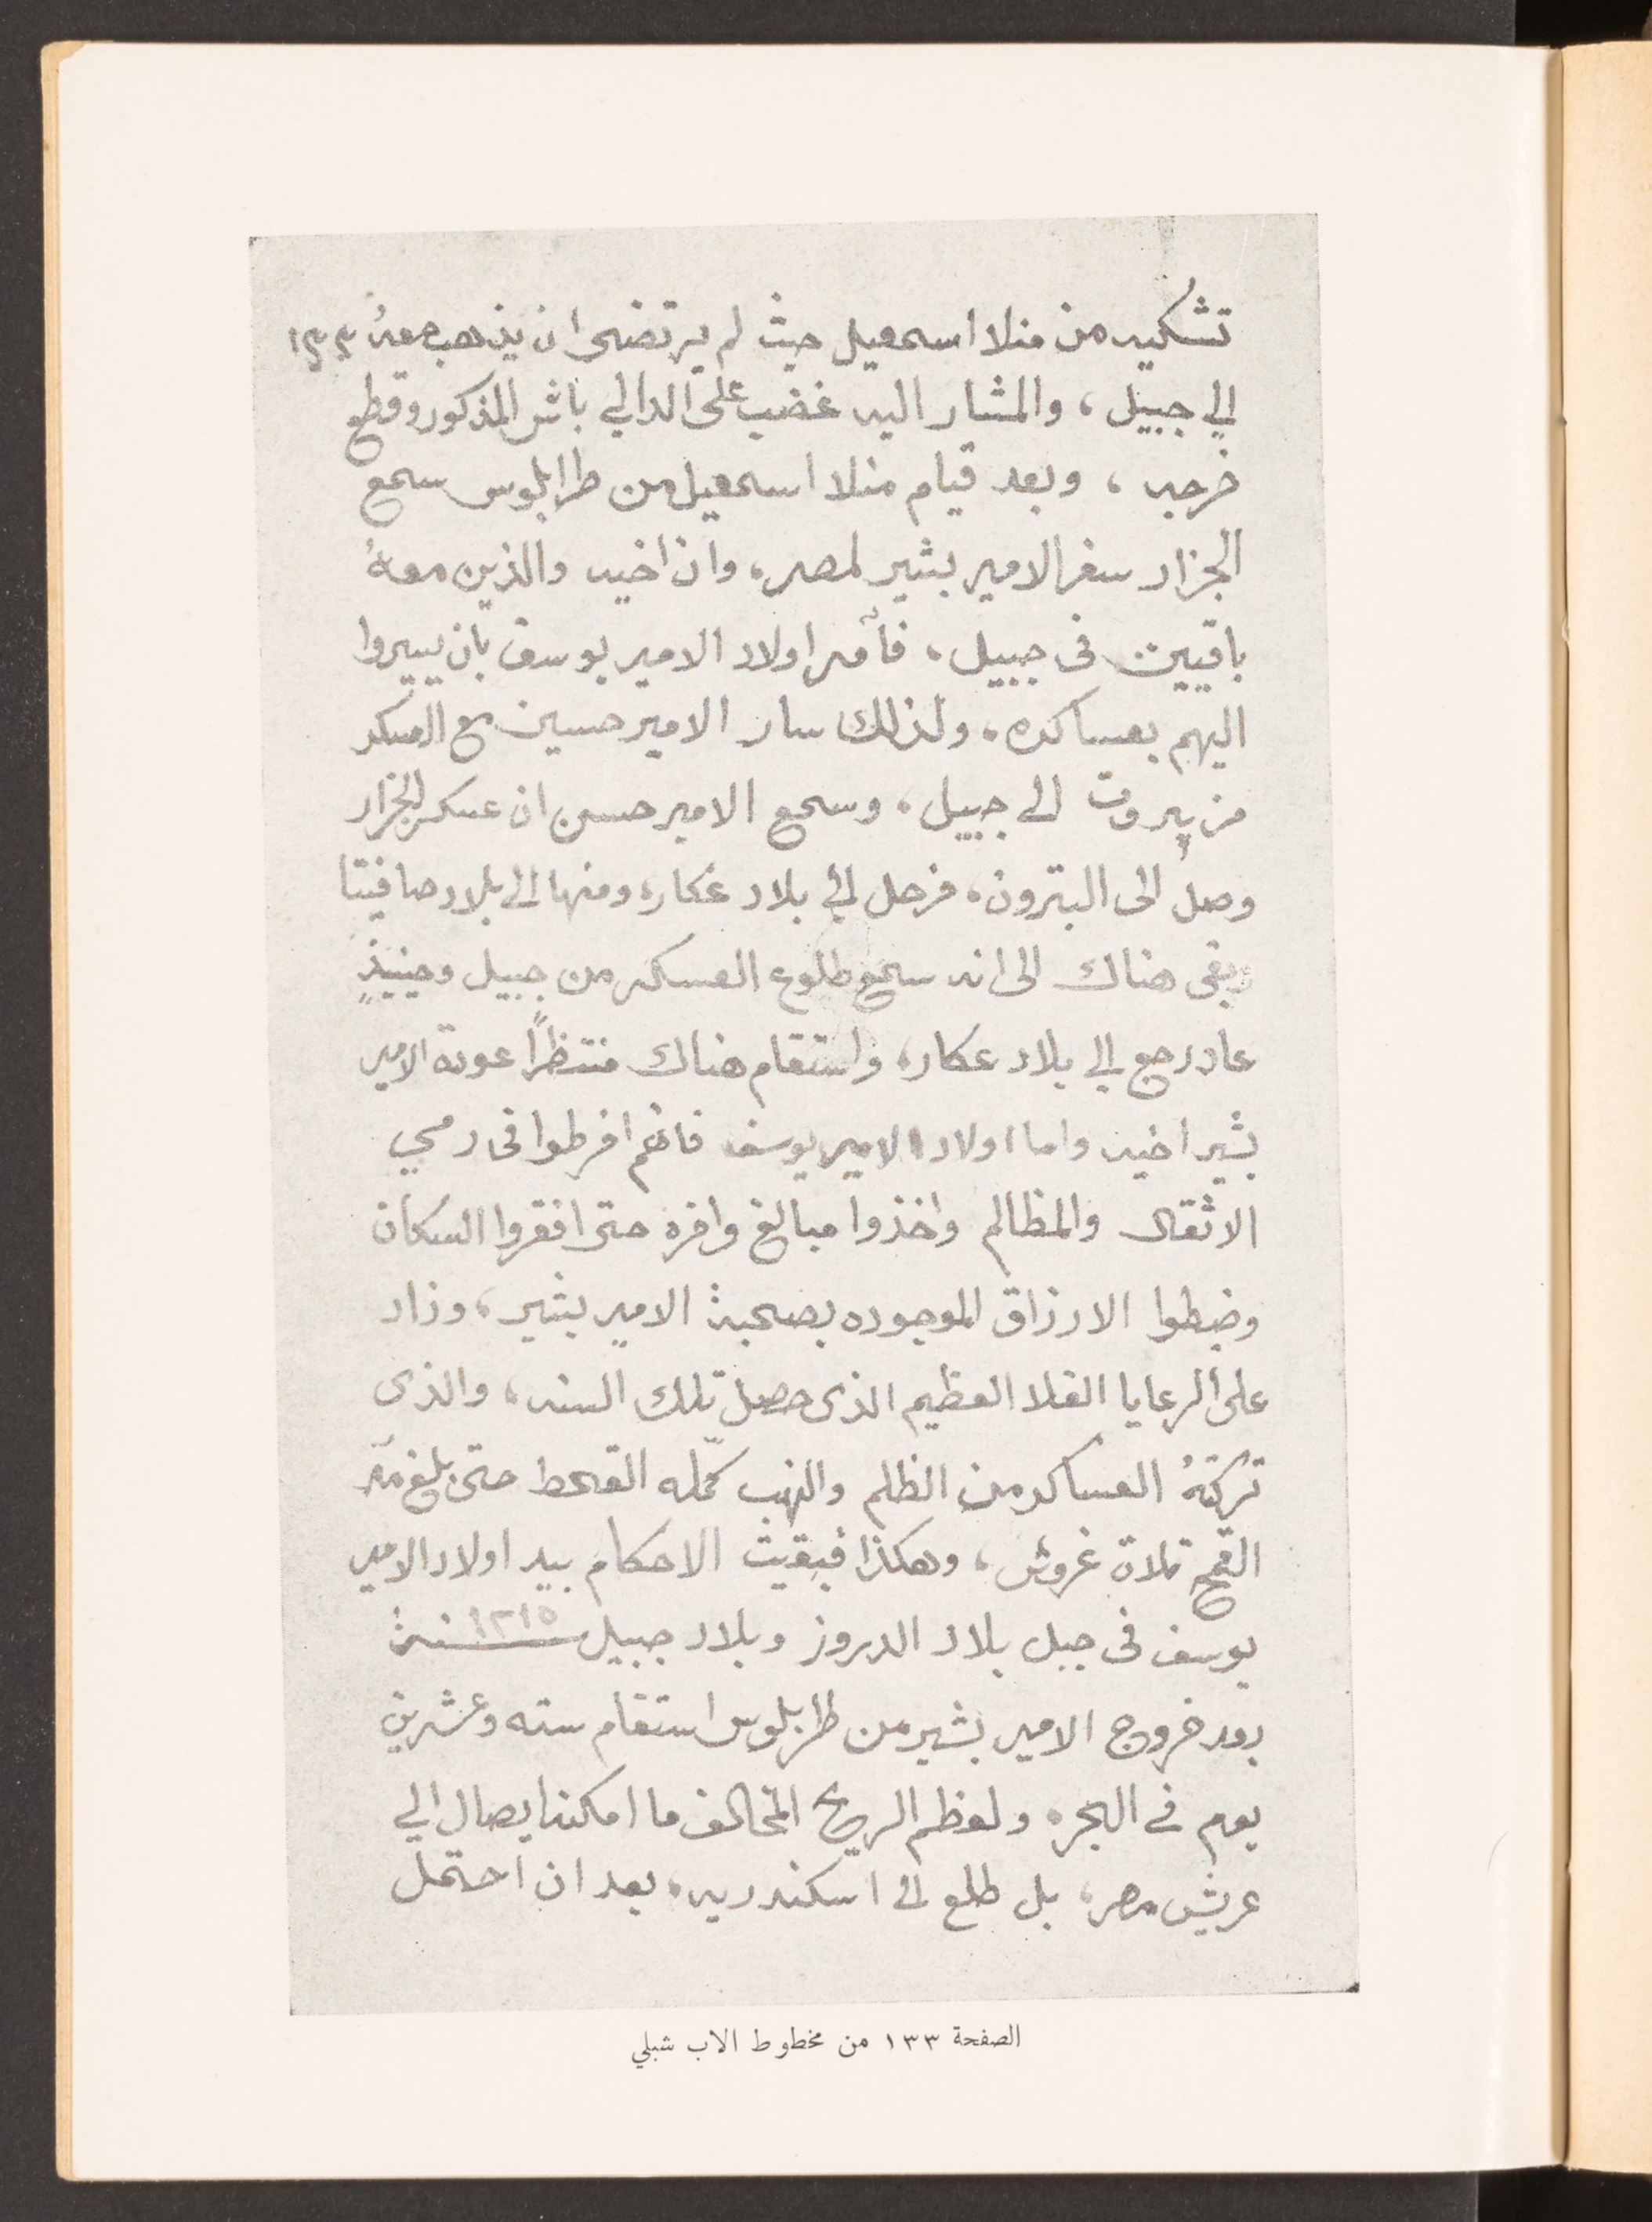 تشكيه من منلا اسمعيل حيث لم يرتضى ان يذهب معهُ ١٣٣
الي جبيل ، والمشار اليه غضب على الدالي باش المذكور وقطع
خرجه ، وبعد قيام منلا اسمعيل من طرابلوس سمع
الجزار سفر الامير بشير لمصر، وان اخيه والذين معهُ
باقيين فى جبيل، فأمر اولاد الامير يوسف بان يسيروا
اليهم بعساكره، ولذلك سار الامير حسين مع العسكر
من بيروت الى جبيل، وسمع الامير حسن ان عسكر الجزار
وصل الى البترون، فرحل الي بلاد عكار، ومنها الى بلاد صافيتا
وبقى هناك الى انه سمع طلوع العسكر من جبيل وحينيذٍ
عاد رجع الي بلاد عكار، واستقام هناك منتظرًا عودة الامير
بشير اخيه واما اولاد الامير يوسف فانهم افرطوا فى رمي
الاثقال والمظالم واخذوا مبالغ وافره حتى افقروا السكان
وضبطوا الارزاق الموجوده بصحبة الامير بشير، وزاد
على الرعايا الغلا العظيم الذى حصل تلك السنه، والذى
تركتهُ العساكر من الظلم والنهب كمّله القحط حتى بلغ مدّ
القمح تلاتة غروش، وهكذا فبقيت الاحكام بيد اولاد الامير
يوسف فى جبل بلاد الدروز وبلاد جبيل سنة ١٢١٥
بعد خروج الامير بشير من طرابلوس استقام سته وعشرين
يوم فى البحر، ولعظم الريح المخالف ما امكنه ايصال الي
عريش مصر، بل طلع الى اسكندريه، بعد ان احتمل
الصفحة ١٣٣ من مخطوط الاب شبلي